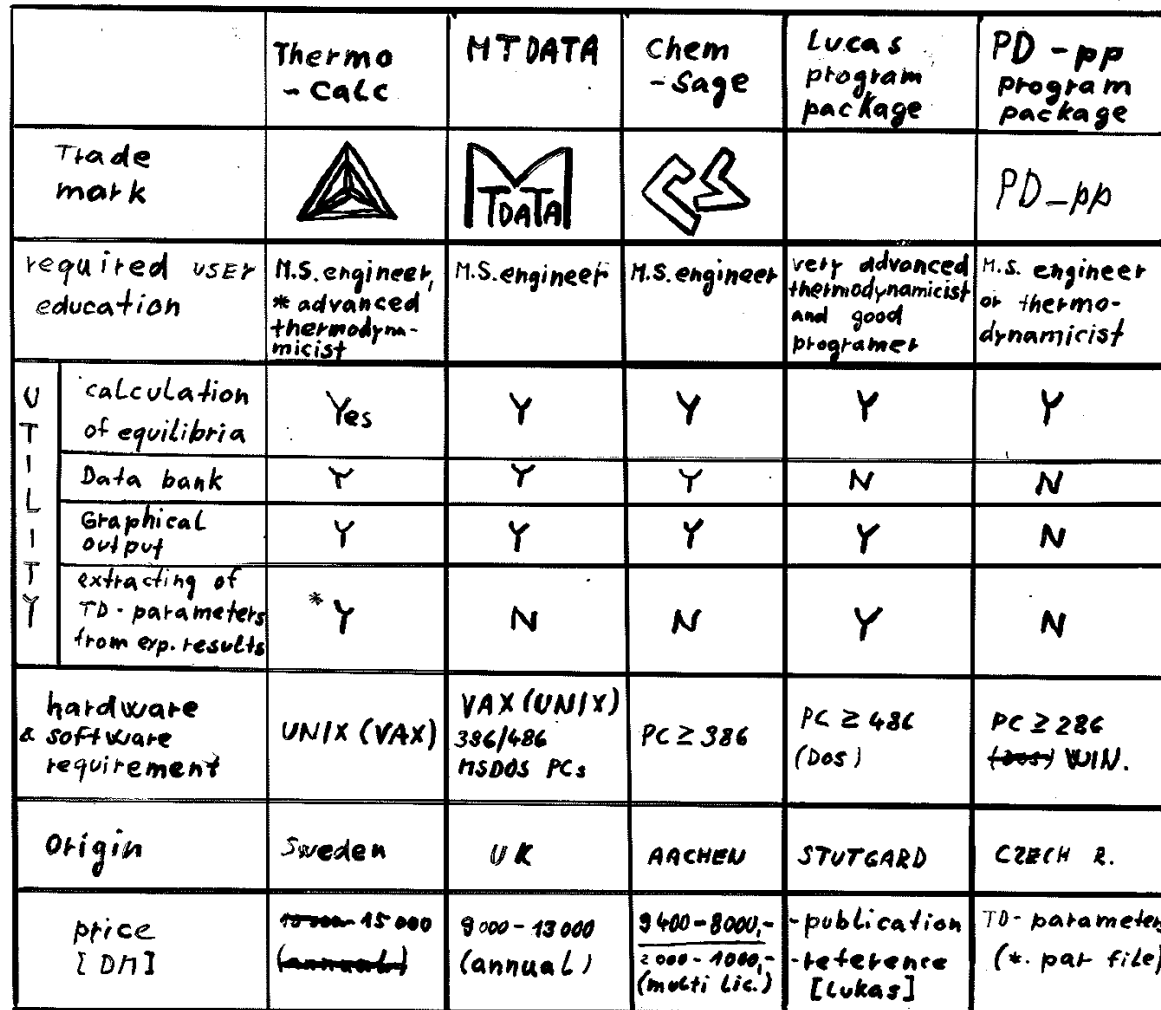 Thermo
- Calc
MTDATA
Chem
- Sage
Lucas
program
package
PD - pp
program
package
Trade
mark
MTDATA
PD_pp
required user
education
M.S. engineer,
* advanced
thermodyna-
micist
M.S. engineer
M.S. engineer
very advanced
thermodynamicist
and good
programer
M.S. engineer
or thermo-
dynamicist
UTILITY
calculation
of equilibria
Yes
Y
Y
Y
Y
Data bank
Y
Y
Y
N
N
Graphical
output
Y
Y
Y
Y
N
extracting of
TD - parameters
from exp. results
* Y
N
N
Y
N
hardware
& software
requirement
UNIX (VAX)
VAX (UNIX)
386/486
MSDOS PCs
PC ≥ 386
PC ≥ 486
(DOS)
PC ≥ 286
(DOS) WIN.
Origin
Sweden
UK
AACHEN
STUTGARD
CZECH R.
price
[DM]
15 000
(annual)
9 000 - 13 000
(annual)
9 400 - 8000,-
2 000 - 1000,-
(multi Lic.)
- publication
- reference
[Lukas]
TD- parameters
(*. par file)